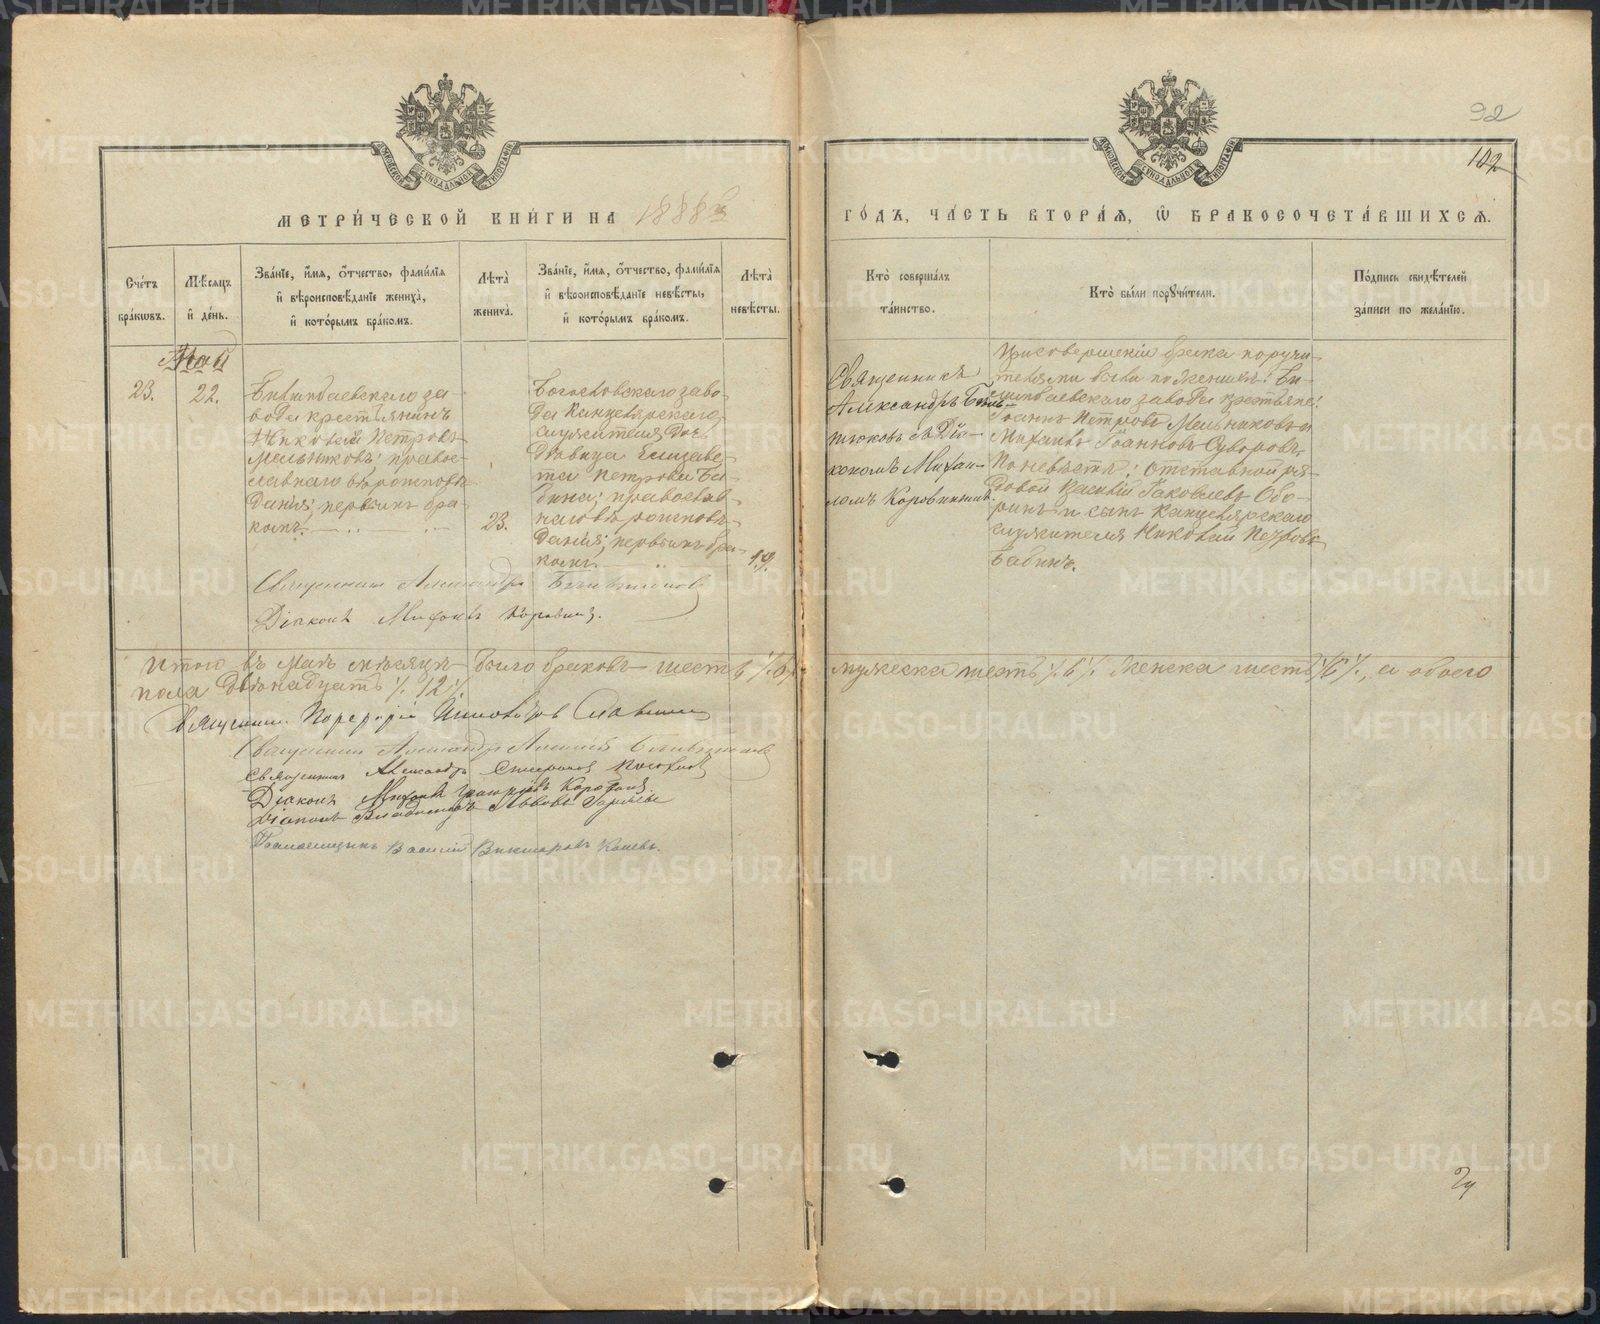 92
102
МЕТРИЧЕСКОЙ КНИГИ НА 1888
ГОДЪ, ЧАСТЬ ВТОРАЯ, Ѡ БРАКОСОЧЕТАВШИХСЯ.
Счетъ браковъ.
Мѣсяцъ и день.
Званіе, имя, отчество, фамилія и вѣроисповѣданіе жениха, и которымъ бракомъ.
Лѣта жениха.
Званіе, имя, отчество, фамилія и вѣроисповѣданіе невѣсты, и которымъ бракомъ.
Лѣта невѣсты.
Кто совершалъ таинство.
Кто были поручители.
Подпись свидѣтелей записи по желанію.
Май
23.
22.
Билимбаевскаго за-
вода крестьянинъ
Николай Петровъ
Мельниковъ; правос-
лавнаго вѣроисповѣ-
данія; первымъ бра-
комъ.
23.
Богословскаго заво-
да Канцелярскаго
служителя дочь
дѣвица Елизаве-
та Петрова Ба-
бина; православ-
наго вѣроисповѣ-
данія; первымъ бра-
комъ.
19.
Священникъ
Александръ
съ Діа-
кономъ Миха-
ломъ Коровинымъ.
При совершеніи брака поручи-
телями были по женихѣ: Би-
лимбаевскаго завода крестьяне:
Іоаннъ Петровъ Мельниковъ и
Михаилъ Іоанновъ Суворовъ,
По невѣстѣ: отставной ря-
довой Василій Іаковлевъ
и сынъ Канцелярскаго
служителя Николай Петровъ
Бабинъ.
Священникъ Александръ
Діаконъ Коровинъ.
Итого въ Маѣ мѣсяцѣ было браковъ шесть /6/, мужеска шесть /6/ женска шесть /6/, а обоего
пола двѣнадцать /12/
Священникъ
Священникъ Александръ
Священникъ Александръ
Діаконъ Коровинъ
Діаконъ Владимиръ
Псаломщикъ Василій Викторовъ